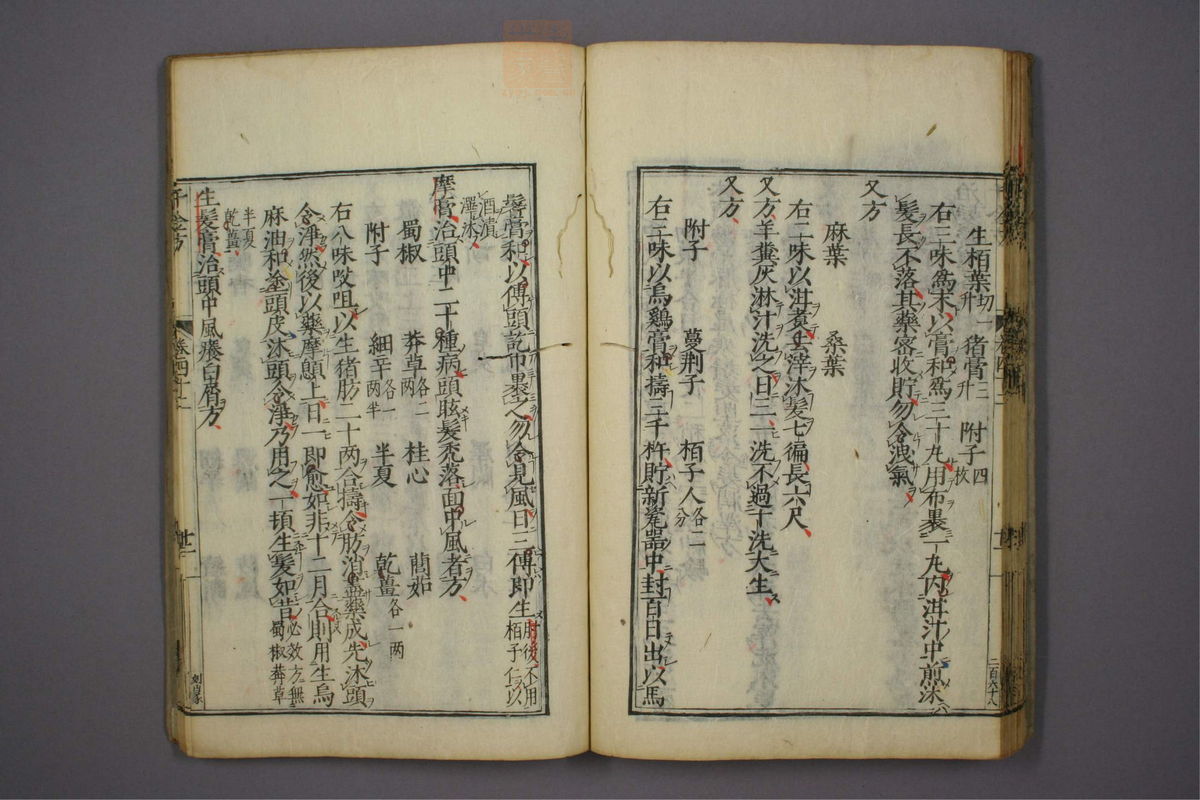 生栢葉切一升　猪膏三升　附子四枚
右三味爲末以膏和爲三十丸用布裹一丸内泔汁中煎沐
髮長不落其藥密收貯勿令洩氣
又方
麻葉　桑葉
右二味以泔煮去滓沐髮七徧長六尺
又方羊糞灰淋汁洗之日三一洗不過十洗大生
又方
附子　蔓荆子　栢子人各二分
右三味以烏鷄膏和擣三千杵貯新瓷器中封百日出以馬
鬐膏和以傅頭訖巾裹之勿令見風日三傅即生肘後不用栢子仁以
酒漬澤沐
摩膏治頭中二十種病頭眩髮禿落面中風者方
蜀椒　莽草各二两　桂心　䕡茹
附子　細辛各一两半　半夏　乾薑各一两
右八味㕮咀以生猪肪二十两合擣令肪消盡藥成先沐頭
令淨然後以藥摩顖上日一即愈如非十二月合則用生烏
麻油和塗頭皮沐頭令淨乃用之一頓生髮如昔必效方無蜀椒莽草
半夏乾薑
生髮膏治頭中風癢白屑方
千金方
卷四十二
二百六十八